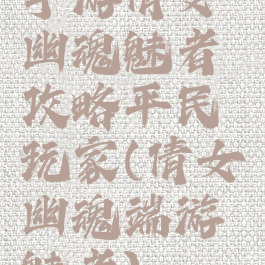 手游倩女
幽魂魅者
攻略平民
玩家(倩女
幽魂端游
魅者)